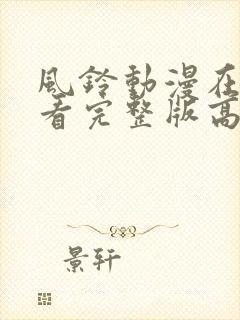 風鈴動漫在
看完整版高
景轩